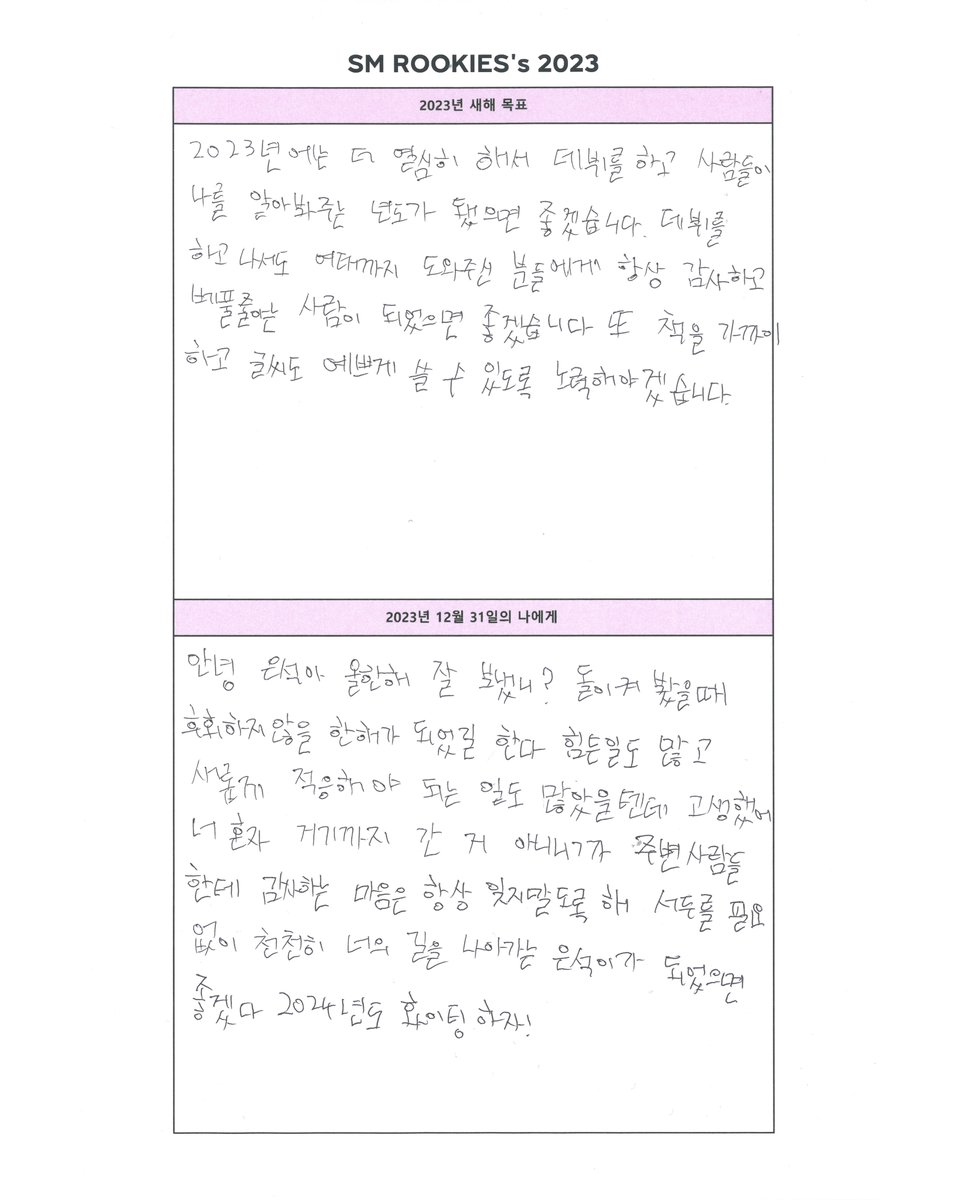 SM ROOKIES's 2023
2023년 새해 목표
2023년에는 더 열심히 해서 데뷔를 하고 사람들이
나를 알아봐주는 년도가 됐으면 좋겠습니다. 데뷔를
하고 나서도 여태까지 도와주신 분들에게 항상 감사하고
베풀줄아는 사람이 되었으면 좋겠습니다 또 책을 가까이
하고 글씨도 예쁘게 쓸 수 있도록 노력해야겠습니다.
2023년 12월 31일의 나에게
안녕 은석아 올한해 잘 보냈니? 돌이켜 봤을때
후회하지않을 한해가 되었길 한다 힘든일도 많고
새롭게 적응해야 되는 일도 많았을텐데 고생했어
너 혼자 거기까지 간 거 아니니까 주변사람들
한테 감사하는 마음은 항상 잊지말도록 해 서두를 필요
없이 천천히 너의 길을 나아가는 은석이가 되었으면
좋겠다 2024년도 화이팅하자!